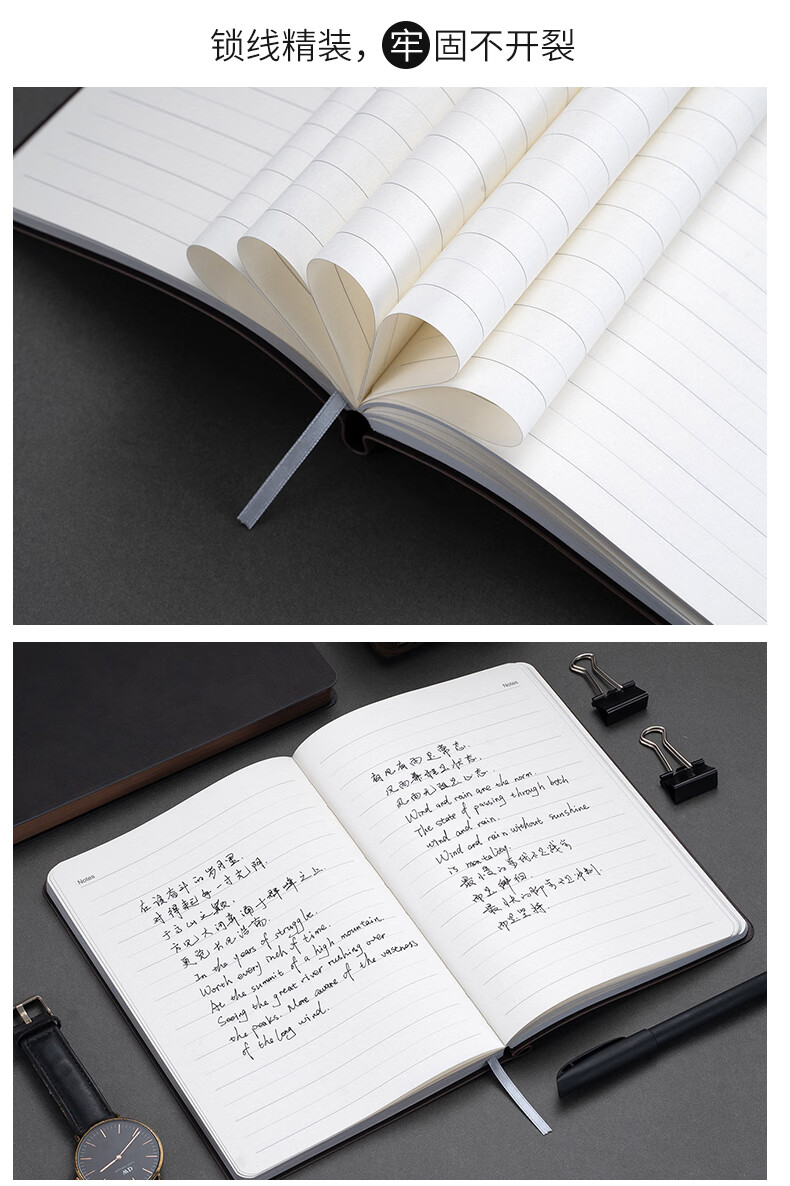 锁线精装，牢固不开裂
Notes
在该奋斗的岁月里，
对得起每一寸光阴.
于高山之巅，
方见大河奔涌于群峰之上
更觉长风浩荡
In the years of struggle.
Worth every inch of time.
At the summit of a high mountain.
Seeing the great river rushing over
the peaks. More aware of the vastness
of the long wind.
Notes
有风有雨是常态
风雨兼程是状态
风雨无阻是心态
Wind and rain are the norm.
The state of passing through both
wind and rain.
Wind and rain without sunshine
is mentality.
最慢的步伐不是跬步
而是徘徊
最快的脚步不是冲刺
而是坚持